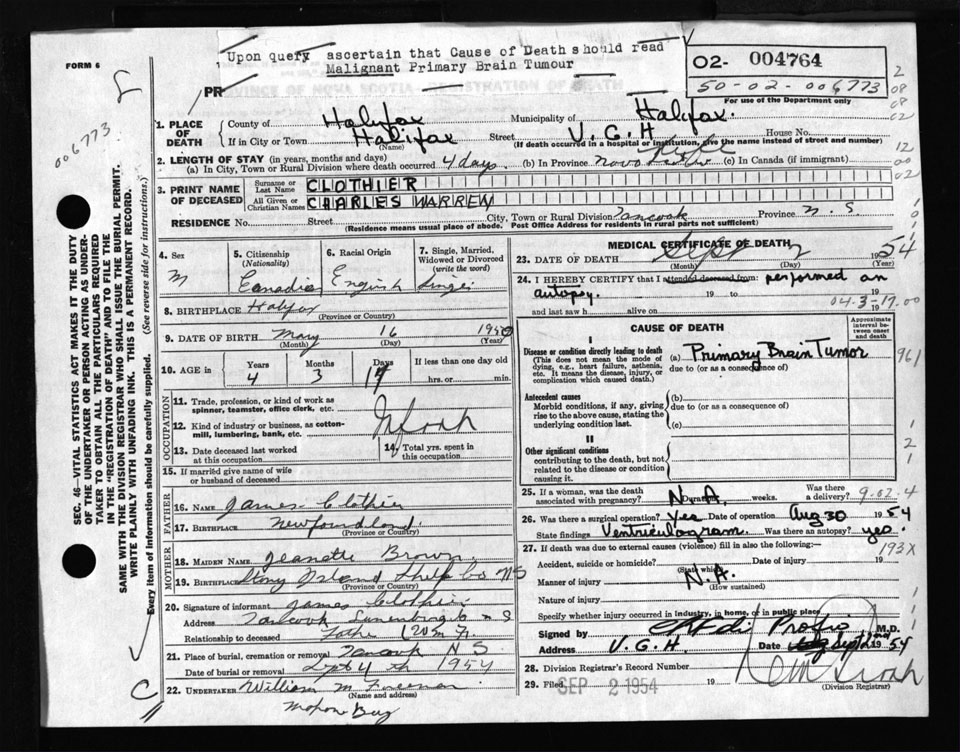 Upon query ascertain that Cause of Death should read
Malignant Primary Brain Tumour
FORM 6
PR
PROVINCE OF NOVA SCOTIA—REGISTRATION OF DEATH
O2- 004764
50-02-006773
For use of the Department only
006773
1. PLACE OF DEATH
County of Halifax
Municipality of Halifax.
If in City or Town Halifax
(Name)
Street V.G.H House No.
(If death occurred in a hospital or institution, give the name instead of street and number)
2. LENGTH OF STAY (in years, months and days)
(a) In City, Town or Rural Division where death occurred 4 days. (b) In Province Nova Scotia (c) In Canada (if immigrant) Life
3. PRINT NAME OF DECEASED
Surname or Last Name CLOTHIER
All Given or Christian Names CHARLES WARREN
RESIDENCE No. Street City, Town or Rural Division Tancook Province N.S.
(Residence means usual place of abode. Post Office Address for residents in rural parts not sufficient)
4. Sex
M
5. Citizenship
(Nationality)
Canadian
6. Racial Origin
English
7. Single, Married, Widowed or Divorced
(write the word)
Single
8. BIRTHPLACE Halifax
(Province or Country)
9. DATE OF BIRTH May 16 1950
(Month) (Day) (Year)
10. AGE in
Years Months Days If less than one day old
4 3 17 hrs. or min.
OCCUPATION
11. Trade, profession or kind of work as spinner, teamster, office clerk, etc.
12. Kind of industry or business, as cotton-mill, lumbering, bank, etc.
13. Date deceased last worked at this occupation
14. Total yrs. spent in this occupation
15. If married give name of wife or husband of deceased
FATHER
16. Name James Clothier
17. Birthplace Newfoundland.
(Province or Country)
MOTHER
18. MAIDEN NAME Jeanette Brown
19. BIRTHPLACE Stony Island Shelb Co NS
(Province or Country)
20. Signature of informant James Clothier
Address Tancook Lunenburg Co N S
Relationship to deceased Father
21. Place of burial, cremation or removal Tancook N S
Date of burial or removal Sept 4 th 1954
22. UNDERTAKER William M Freeman
(Name and address)
Mahone Bay
MEDICAL CERTIFICATE OF DEATH
23. DATE OF DEATH Sept 2 1954
(Month) (Day) (Year)
24. I HEREBY CERTIFY that I attended deceased from: performed an
autopsy. 19 to 19
and last saw h alive on
04-3-17.00
CAUSE OF DEATH
Approximate interval between onset and death
I
Disease or condition directly leading to death
(This does not mean the mode of dying, e.g., heart failure, asthenia, etc. It means the disease, injury, or complication which caused death.)
(a) Primary Brain Tumor
due to (or as a consequence of)
Antecedent causes
Morbid conditions, if any, giving rise to the above cause, stating the underlying condition last.
(b)
due to (or as a consequence of)
(c)
II
Other significant conditions
contributing to the death, but not related to the disease or condition causing it.
25. If a woman, was the death associated with pregnancy? N.A. Duration weeks. Was there a delivery? 9-02-4
26. Was there a surgical operation? Yes Date of operation Aug 30 1954
State findings Ventriculogram. Was there an autopsy? yes.
27. If death was due to external causes (violence) fill in also the following:—
193X
Accident, suicide or homicide? Date of injury 19
(State which)
Manner of injury N.A.
(How sustained)
Nature of injury
Specify whether injury occurred in industry, in home, or in public place
Signed by M.D.
Address V.G.H. Date Sept 2nd 1954
28. Division Registrar's Record Number
29. Filed SEP 2 1954 19
(Division Registrar)
SEC. 46—VITAL STATISTICS ACT MAKES IT THE DUTY
OF THE UNDERTAKER OR PERSON ACTING AS UNDER-
TAKER TO OBTAIN ALL THE PARTICULARS REQUIRED
IN THE "REGISTRATION OF DEATH" AND TO FILE THE
SAME WITH THE DIVISION REGISTRAR WHO SHALL ISSUE THE BURIAL PERMIT.
WRITE PLAINLY WITH UNFADING INK. THIS IS A PERMANENT RECORD.
Every item of information should be carefully supplied. (See reverse side for instructions.)